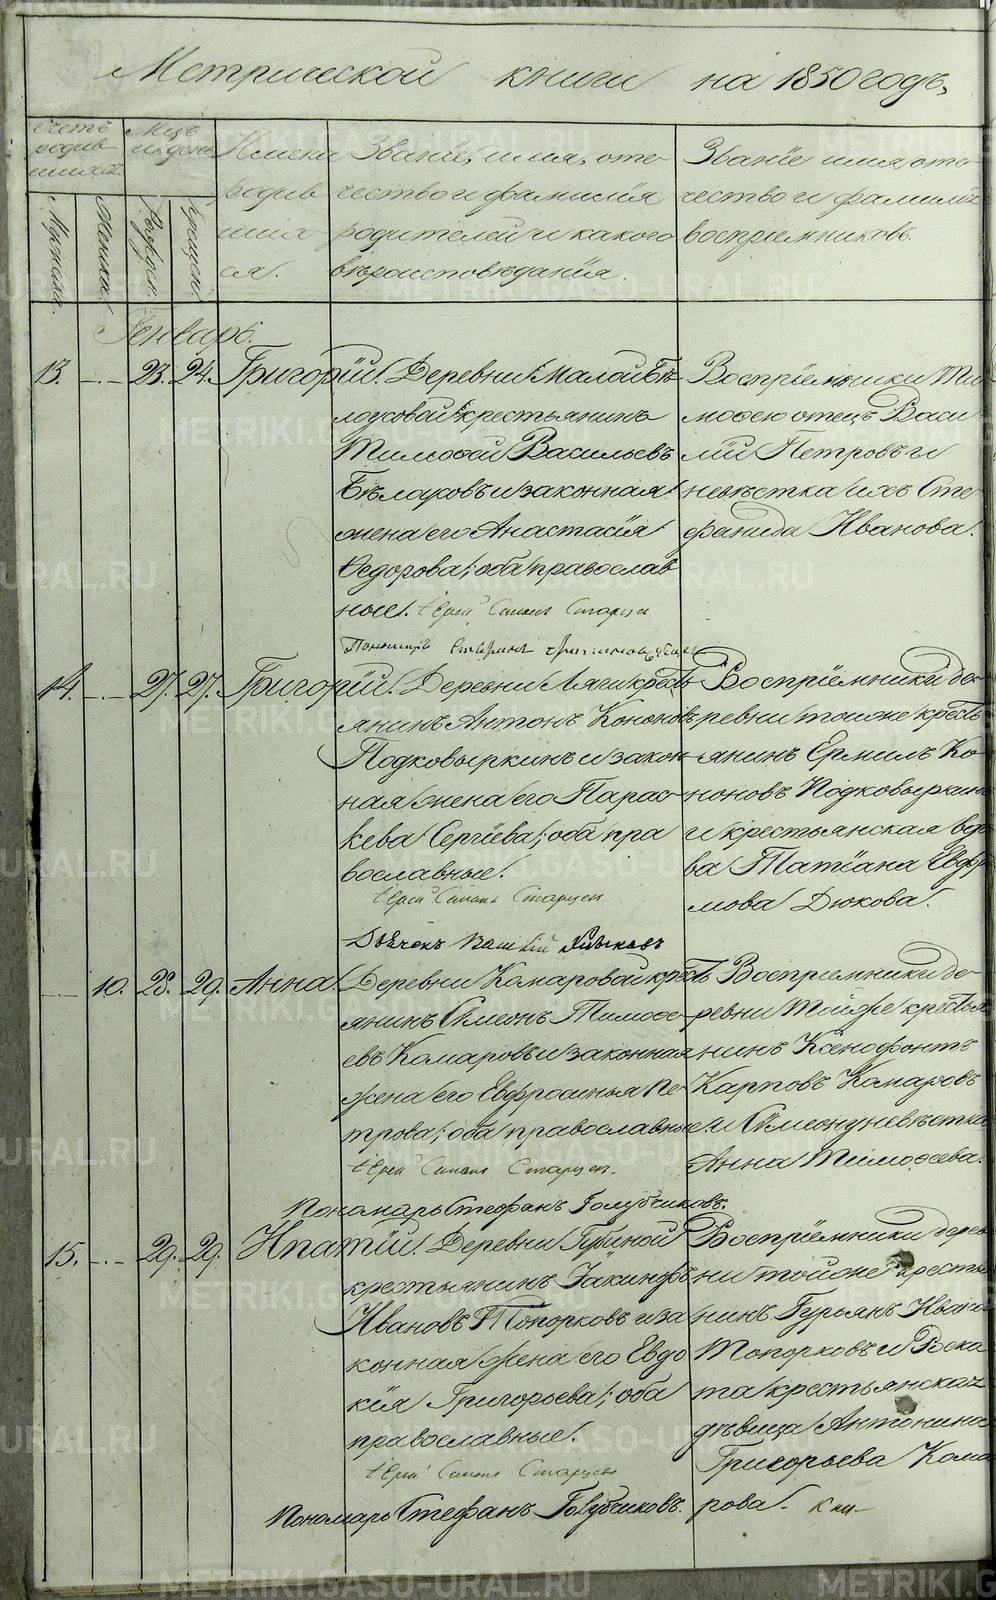 Метрической книги на 1850 годъ,
Счетъ родив шихся
Мужска.
Женска.
Мѣц. и день
Рожден.
Крещен.
Имена родив шихся.
Званіе, имя, оте-
чество и фамилія
родителей и какого
вѣроисповѣданія.
Званіе имя оте-
чество и фамилія
воспріемниковъ.
Генварь.
13. 23. 24. Григорій.
Деревни Малой Бѣ-
лоуховой крестьянинъ
Тимофей Васильевъ
Бѣлоуховъ и законная
жена его Анастасія
Ѳедорова; оба православ
ные.
Іерей Симонъ Старцев
Воспріемники Ти-
мофею отецъ Васи
лій Петровъ и
невѣстка ихъ Сте
фанида Иванова.
14. 27. 27. Григорій.
Деревни Лягикресть
янинъ Антонъ Кононовъ
Подковыркинъ и закон
ная жена его Парас-
кева Сергіева; оба пра
вославные.
Іерей Симонъ Старцев
Воспріемники де-
ревни тойже кресть
янинъ Ермилъ Ко
ноновъ Подковыркинъ
и крестьянская вдо
ва Татіана Евфи
мова Дюкова.
10. 28. 29. Анна.
Деревни Комаровой кресть
янинъ Симеонъ Тимофе-
евъ Комаровъ и законная
жена его Евфросинья Пе-
трова; оба православные.
Іерей Симонъ Старцев.
Пономарь Стефанъ Голубчиковъ.
Воспріемники де-
ревни тойже крестья
нинъ Ксенофонтъ
Карповъ Комаровъ
и Симеону невѣстка
Анна Тимофеева.
15. 29. 29. Ипатій.
Деревни Губиной
крестьянинъ Іакинфъ
Ивановъ Топорковъ и за
конная жена его Евдо
кія Григорьева; оба
православные.
Іерей Симонъ Старцев
Пономарь Стефанъ Голубчиковъ.
Воспріемники дерев
ни тойже крестья
нинъ Гурьянъ Ивано
Топорковъ и Воска
та крестьянская
дѣвица Антонина
Григорьева Кома
рова.
METRIKI.GASO-URAL.RU